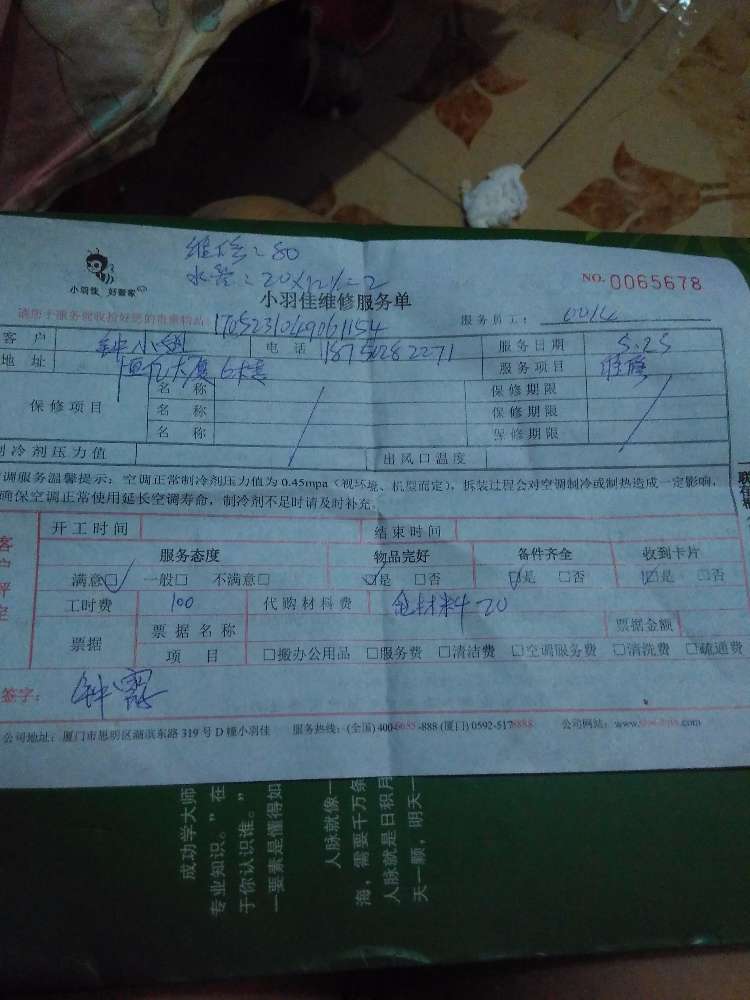 维修:80
小羽佳 好管家
NO. 0065678
小羽佳维修服务单
请您于服务前收拾好您的贵重物品
服务员工:
客户
电话
服务日期 5.25
地址
服务项目
保修项目
名称 保修期限
名称 保修期限
名称 保修期限
制冷剂压力值 出风口温度
空调服务温馨提示:空调正常制冷剂压力值为 0.45mpa(视环境、机型而定),拆装过程会对空调制冷或制热造成一定影响,
确保空调正常使用延长空调寿命,制冷剂不足时请及时补充。
开工时间 结束时间
服务态度 物品完好 备件齐全 收到卡片
满意□ 一般□ 不满意□ □是 □否 □是 □否 □是 □否
工时费 100 代购材料费 包材料20
票据 票据名称 票据金额
项目 □搬办公用品 □服务费 □清洁费 □空调服务费 □清洗费 □疏通费
签字:钟露
公司地址:厦门市思明区湖滨东路 319 号 D 幢小羽佳 服务热线:(全国) 400-6655-888 (厦门) 0592-5178888 公司网站:
成功学大师
专业知识。”在
于你认识谁。”
一要素是懂得如
人脉就像一
海,需要千万条
人脉就是日积月
天一颗,明天一